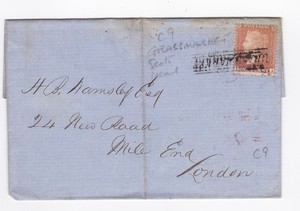 C9
GRASSMARKET
Scots
H.B. Hamsley Esq
24 New Road
Mile End
London
C9